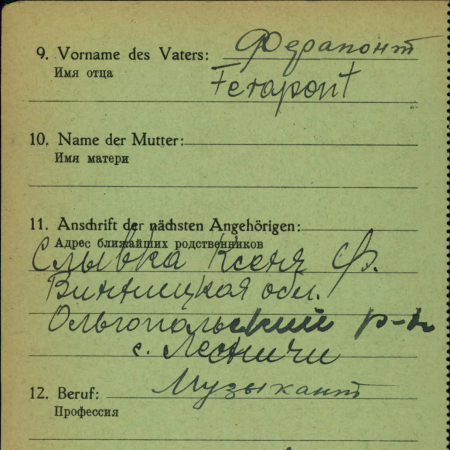 9. Vorname des Vaters: Ферапонт
Имя отца
Ferapont
10. Name der Mutter:
Имя матери
11. Anschrift der nächsten Angehörigen:
Адрес ближайших родственников
Слывка Ксеня Ф.
Винницкая обл.
Ольгопольский р-н
с. Лесничи
12. Beruf: Музыкант
Профессия